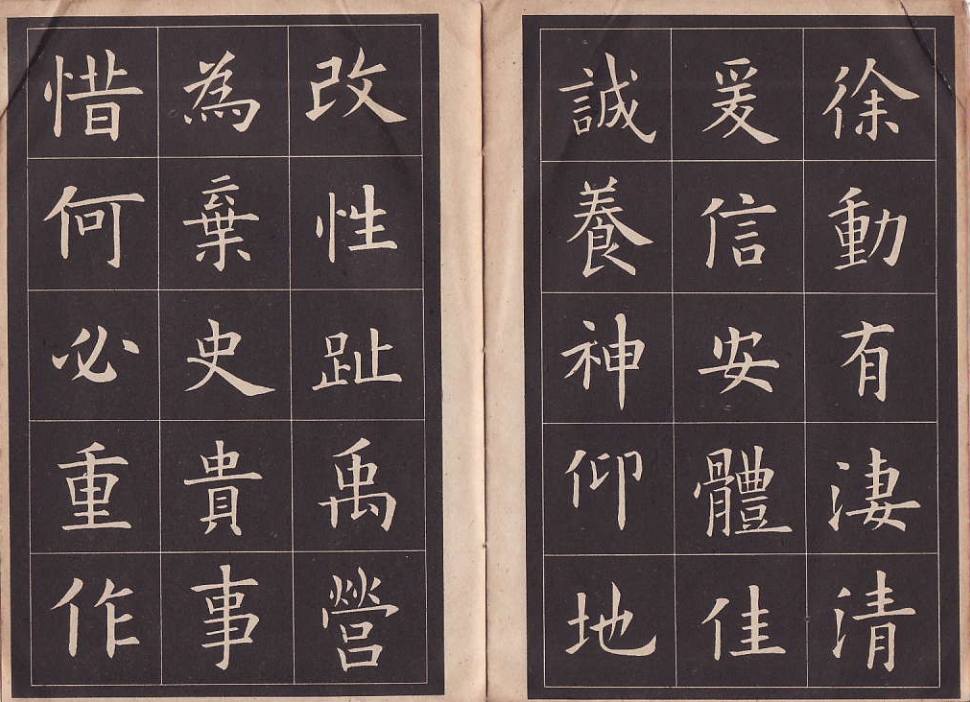 徐動有淒清
爰信安體佳
誠養神仰地
改性趾禹營
為棄史貴事
惜何必重作